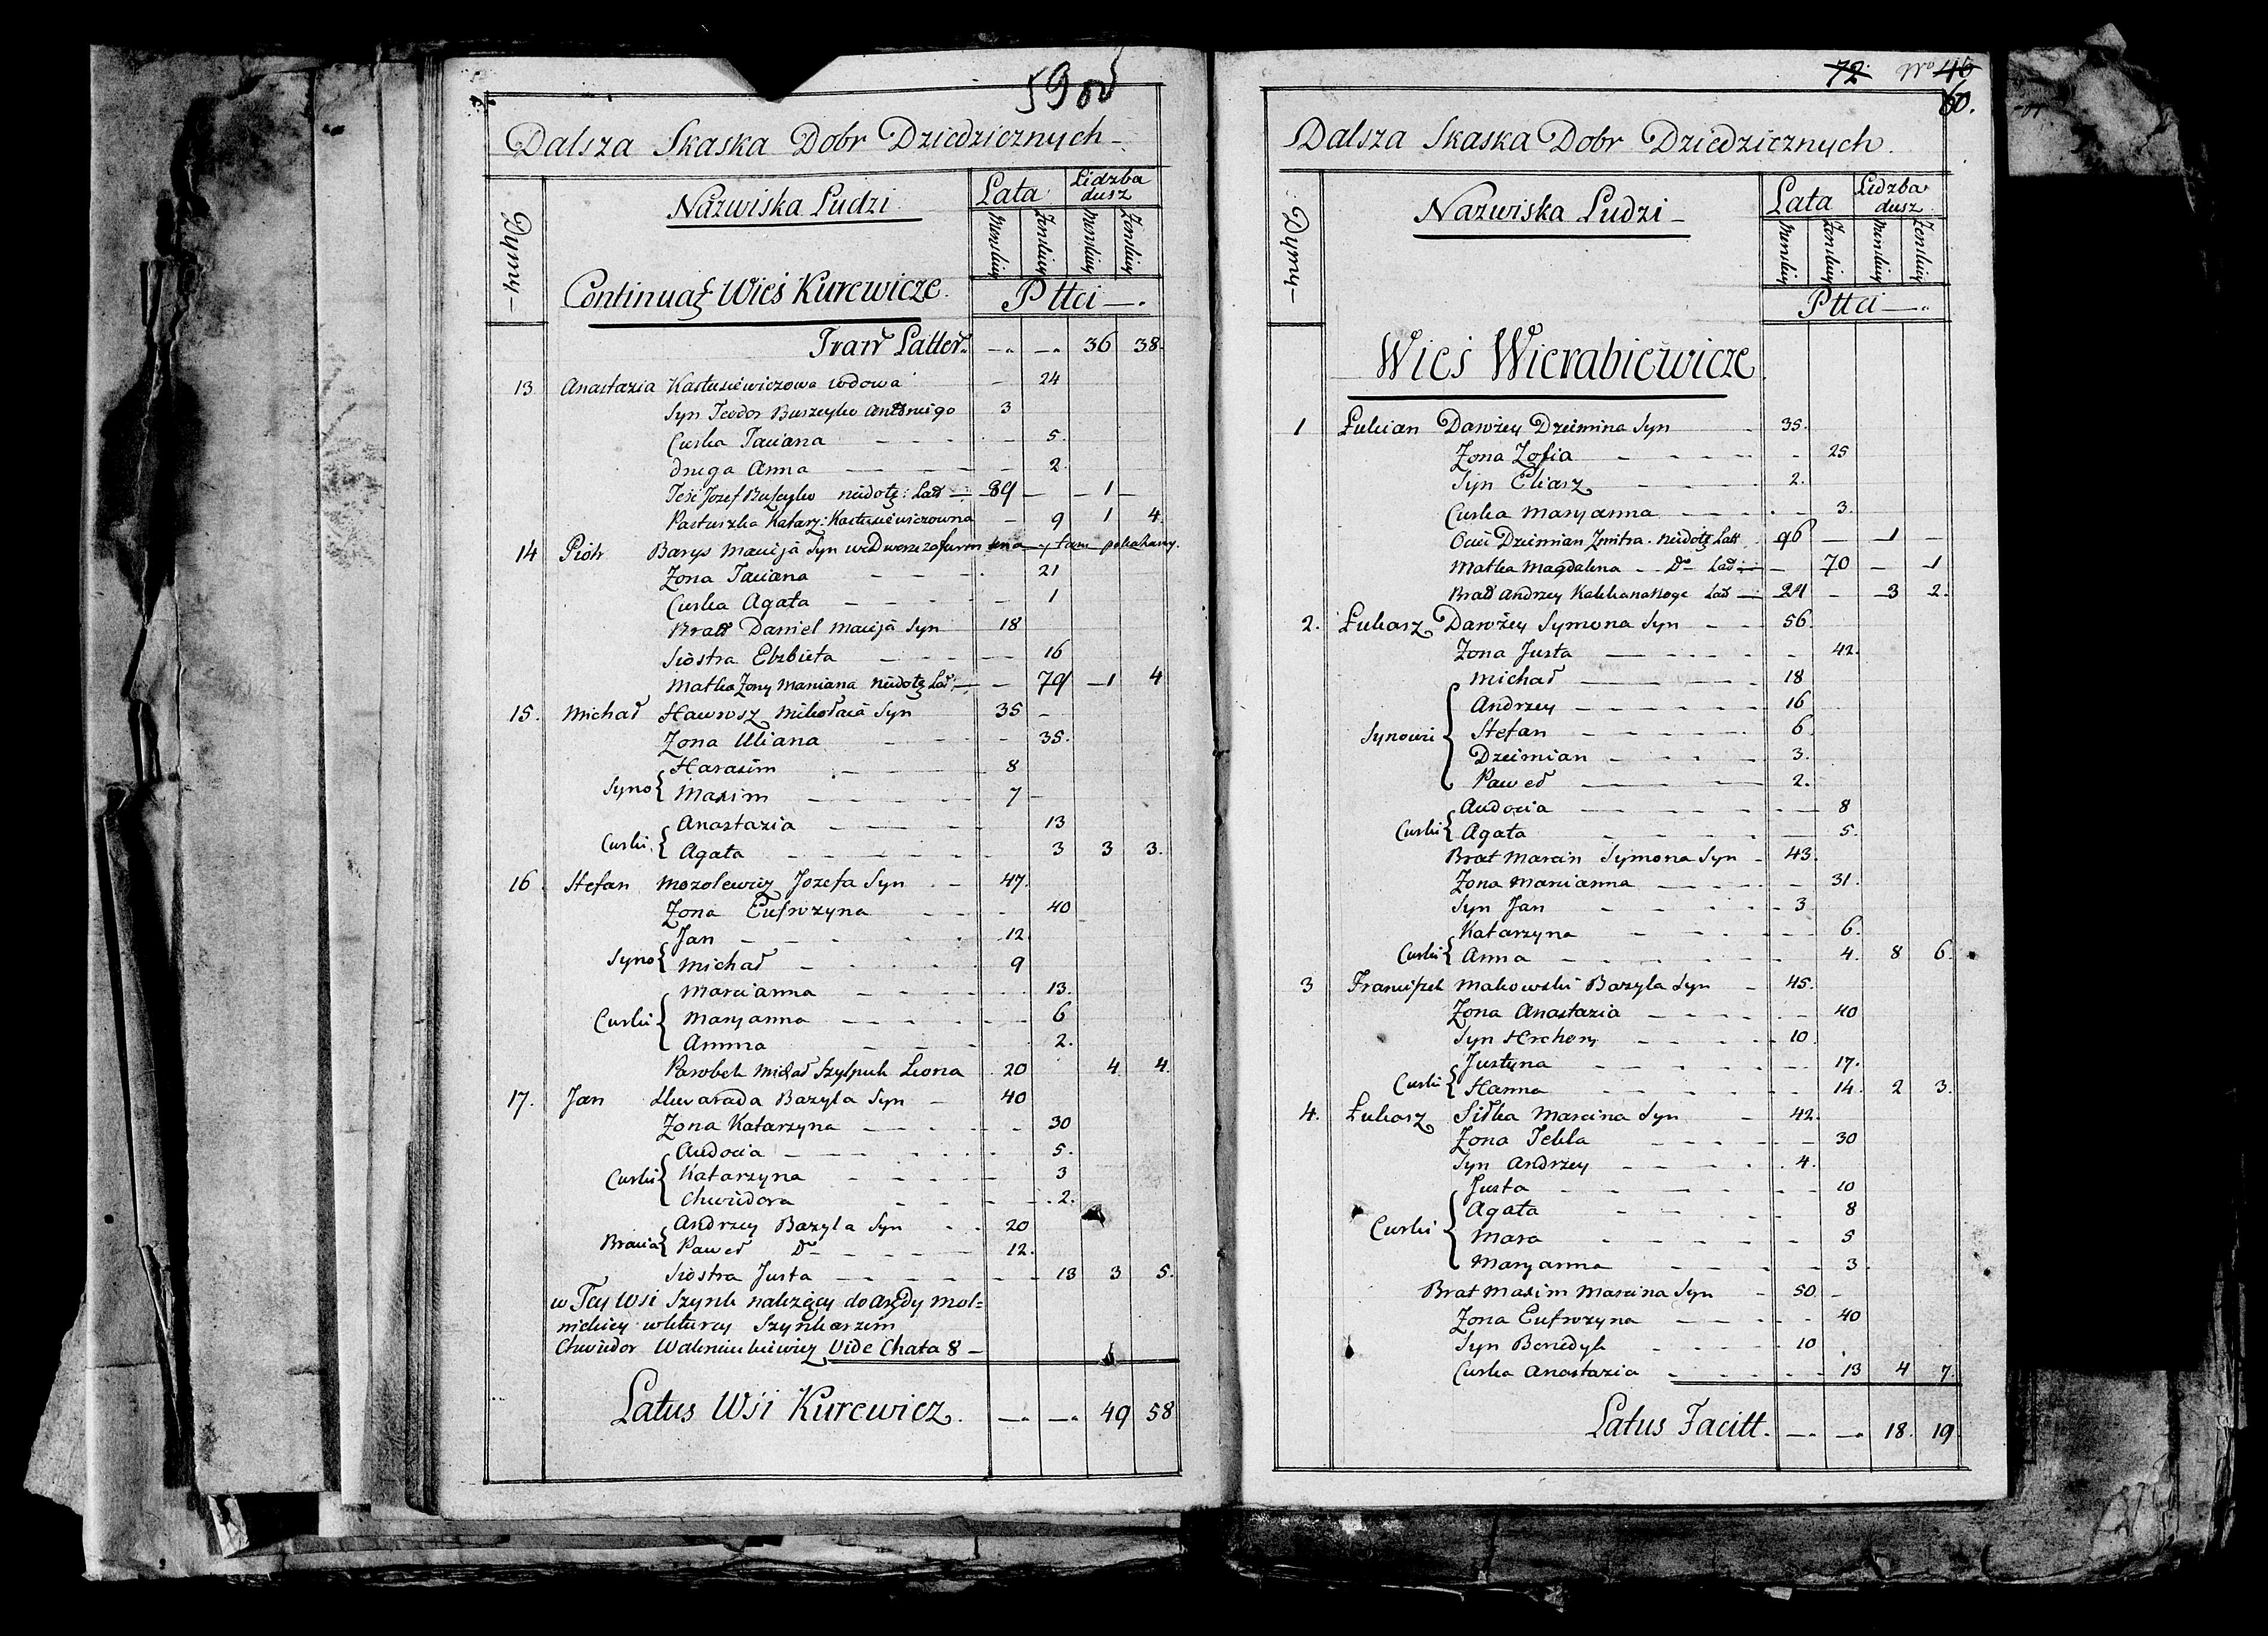 59 об
Dalsza Skaska Dobr Dziedzicznych
Dymy
Nazwiska Ludzi
Lata
Lidzba dusz
Męskiey Zenskiey Męskiey Zenskiey
Continuaţ Wieś Kurewicze.
Płłci
36 38.
13 Anastazia Kastusiewiczowa wdowa 24
Syn Teodor Buszeyko 3
Curka Taciana 5.
druga Anna 2.
Teść Jozef Buszeyko niedołę: Latt 89 1
Pastuszka Katarz: Kastusiewiczowna 9 1 4
14 Piotr Barys Macija Syn we Dworze za furmana y tam pokazany.
Zona Taciana 21
Curka Agata 1
Bratt Daniel Macija Syn 18
Siostra Elzbieta 16
Matka Zony Maniana Niedołę Lat 79 1 4
15. Michał Hawrosz Mikołaia Syn 35
Zona Uliana 35.
Syno
Harasim 8
Maxim 7
Curki
Anastazia 13
Agata 3 3 3.
16. Stefan Mozolewicz Jozefa Syn 47.
Zona Eufrozyna 40
Syno
Jan 12.
Michał 9
Curki
Marcianna 13.
Maryanna 6
Amma 2.
Parobek Michał Leona 20 4 4.
17. Jan Bazyla Syn 40
Zona Katarzyna 30
Curki
Audocia 5.
Katarzyna 3
Chwiedora 2.
Bracia
Andrzey Bazyla Syn 20
Paweł Do 12.
Siostra Justa 13 3 5.
w Tey Wsi Szynk nalezący do Arędy Mol=
nickiey wkturey Szynkarzem
Chwiedor Vide Chata 8
Latus Wsi Kurewicz. 49 58
72. No 46
60.
Dalsza Skaska Dobr Dziedzicznych.
Dymy
Nazwiska Ludzi
Lata
Lidzba dusz
Męskiey Zenskiey Męskiey Zenskiey
Płłci
Wieś Wierabiewicze
1 Łukian Dawżey Dziemina Syn 35.
Zona Zofia 25
Syn Eliasz 2.
Curka Maryanna 3.
Ociec Dziemian Zmitra. Niedołę Latt 96 1
Matka Magdalena Do Lat 70 1
Bratt Andrzey Lat 24 3 2.
2. Łukasz Dawżey Symona Syn 56.
Zona Justa 42.
Synowi
Michał 18
Andrzey 16
Stefan 6.
Dziemian 3.
Paweł 2.
Curki
Audocia 8
Agata 5.
Brat Marcin Symona Syn 43.
Zona Marcianna 31.
Syn Jan 3
Curki
Katarzyna 6.
Anna 4. 8 6.
3 Franciszek Makowski Bazyla Syn 45.
Zona Anastazia 40
Syn Hrehory 10
Curki
Justyna 17.
Hanna 14. 2 3.
4. Łukasz Siłka Marcina Syn 42.
Zona Tekla 30
Syn Andrzey 4.
Curki
Justa 10
Agata 8
Mara 5
Maryanna 3
Brat Maxim Marcina Syn 50
Zona Eufrozyna 40
Syn Benedyk 10
Curka Anastazia 13 4 7.
Latus Facitt. 18. 19